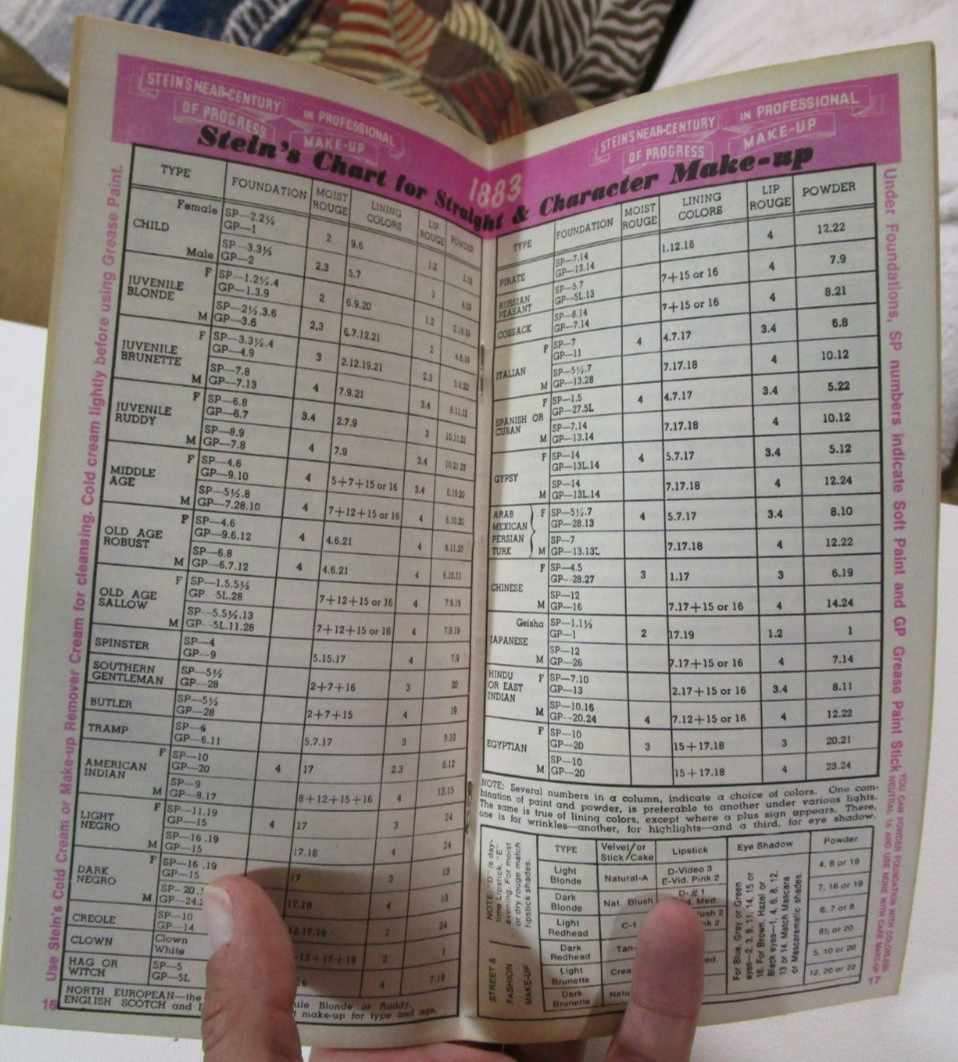 STEIN'S NEAR-CENTURY
OF PROGRESS
IN PROFESSIONAL
MAKE-UP
Stein's Chart for Straight
TYPE FOUNDATION MOIST ROUGE LINING COLORS LIP ROUGE POWDER
CHILD
Female SP—2.2½ GP—1 2 9.6 1.2
Male SP—3.3½ GP—2 2.3 5.7
JUVENILE BLONDE
F SP—1.2½.4 GP—1.3.9 2 6.9.20 1.2
M SP—2½.3.6 GP—3.6 2,3 6.7.12.21 2
JUVENILE BRUNETTE
F SP—3.3½.4 GP—4.9 3 2.12.19.21 2.3
M SP—7.8 GP—7.13 4 7.9.21 3.4
JUVENILE RUDDY
F SP—6.8 GP—6.7 3.4 2.7.9 3
M SP—8.9 GP—7.8 4 7.9 3.4
MIDDLE AGE
F SP—4.6 GP—9.10 4 5+7+15 or 16 3.4
M SP—5½.8 GP—7.28.10 4 7+12+15 or 16 4
OLD AGE ROBUST
F SP—4.6 GP—9.6.12 4 4.6.21 4
M SP—6.8 GP—6.7.12 4 4.6.21 4 6.10.11
OLD AGE SALLOW
F SP—1.5.5½ GP—5L.28 7+12+15 or 16 4 7.9.19
M SP—5.5½.13 GP—5L.11.28 7+12+15 or 16 4 7.9.19
SPINSTER SP—4 GP—9 5.15.17 4 7.9
SOUTHERN GENTLEMAN SP—5½ GP—28 2+7+16 3 20
BUTLER SP—5½ GP—28 2+7+15 4 19
TRAMP SP—6 GP—6.11 5.7.17 3 9.10
AMERICAN INDIAN
F SP—10 GP—20 4 17 2.3 8.12
M SP—9 GP—8.17 8+12+15+16 4 12.15
LIGHT NEGRO
F SP—11.19 GP—15 4 17 3 24
M SP—16.19 GP—15 17.18 4 24
DARK NEGRO
F SP—16.19 GP—15 17 3 13
M SP—20. GP—24. 17.18 4 13
CREOLE SP—10 GP—14 12.17.19 2 24
CLOWN Clown White 12+17+18 2 1
HAG OR WITCH SP—5 GP—5L 4 7.19
NORTH EUROPEAN—the
ENGLISH SCOTCH and
Blonde or Ruddy.
make-up for type and age.
16
Use Stein's Cold Cream or Make-up Remover Cream for cleansing. Cold cream lightly before using Grease Paint.
STEIN'S NEAR-CENTURY
OF PROGRESS
IN PROFESSIONAL
MAKE-UP
1883
& Character Make-up
TYPE FOUNDATION MOIST ROUGE LINING COLORS LIP ROUGE POWDER
PIRATE SP—7.14 GP—13.14 1.12.18 4 12.22
RUSSIAN PEASANT SP—5.7 GP—5L.13 7+15 or 16 4 7.9
COSSACK SP—8.14 GP—7.14 7+15 or 16 4 8.21
ITALIAN
F SP—7 GP—11 4 4.7.17 3.4 6.8
M SP—5½.7 GP—13.28 7.17.18 4 10.12
SPANISH OR CUBAN
F SP—1.5 GP—27.5L 4 4.7.17 3.4 5.22
M SP—7.14 GP—13.14 7.17.18 4 10.12
GYPSY
F SP—14 GP—13L.14 4 5.7.17 3.4 5.12
M SP—14 GP—13L.14 7.17.18 4 12.24
ARAB MEXICAN PERSIAN TURK
F SP—5½.7 GP—28.13 4 5.7.17 3.4 8.10
M SP—7 GP—13.13L 7.17.18 4 12.22
CHINESE
F SP—4.5 GP—28.27 3 1.17 3 6.19
M SP—12 GP—16 7.17+15 or 16 4 14.24
JAPANESE
Geisha SP—1.1½ GP—1 2 17.19 1.2 1
M SP—12 GP—26 7.17+15 or 16 4 7.14
HINDU OR EAST INDIAN
F SP—7.10 GP—13 2.17+15 or 16 3.4 8.11
M SP—10.16 GP—20.24 4 7.12+15 or 16 4 12.22
EGYPTIAN
F SP—10 GP—20 3 15+17.18 3 20.21
M SP—10 GP—20 15+17.18 4 23.24
NOTE: Several numbers in a column, indicate a choice of colors. One com-
bination of paint and powder, is preferable to another under various lights.
The same is true of lining colors, except where a plus sign appears. There,
one is for wrinkles—another, for highlights—and a third, for eye shadow.
STREET & FASHION MAKE-UP
NOTE: "D" is day-
time Lipstick, "E"
evening. For moist
or dry rouge match
lipstick shades.
TYPE Velvet/or Stick/Cake Lipstick Eye Shadow Powder
Light Blonde Natural-A D-Video 3 E-Vid. Pink 2 4, 8 or 19
Dark Blonde Nat. Blush D-#1 Med. 7, 16 or 19
Light Redhead C-1 6, 7 or 8
Dark Redhead Tan- 8½ or 20
Light Brunette Crea 5, 10 or 20
Dark Brunette Nat 12, 20 or 22
For Blue, Gray or Green
eyes—2, 3, 9, 11, 14, 15 or
16. For Brown, Hazel or
Black eyes—1, 4, 6, 8, 12,
13 or 14. Match Mascara
or Mascaramatic shades.
17
Under Foundations, SP numbers indicate Soft Paint and GP Grease Paint Stick
YOU CAN POWDER FOUNDATION WITH COLORLESS
NEUTRAL 1A AND USE NONE WITH CAKE MAKE-UP